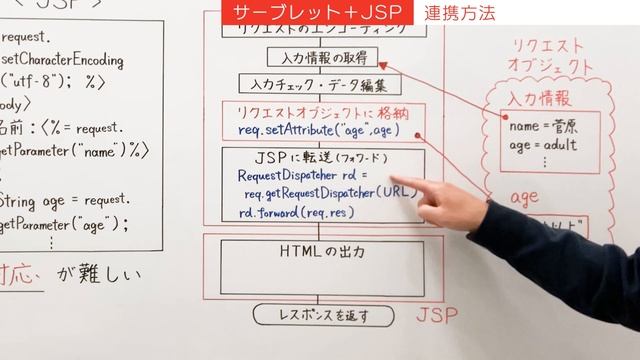 サーブレット＋JSP 連携方法
< JSP >
request.
setCharacterEncoding
("utf-8"); %>
body>
名前：<%= request.
getParameter("name")%>
String age = request.
getParameter("age");
⋮
対応、が難しい
リクエストのエンコーディング
入力情報の取得
入力チェック・データ編集
リクエストオブジェクトに格納
req.setAttribute("age",age)
JSPに転送(フォワード)
RequestDispatcher rd =
req.getRequestDispatcher(URL)
rd.forward(req.res)
HTMLの出力
レスポンスを返す
JSP
リクエスト
オブジェクト
入力情報
name = 菅原
age = adult
⋮
age